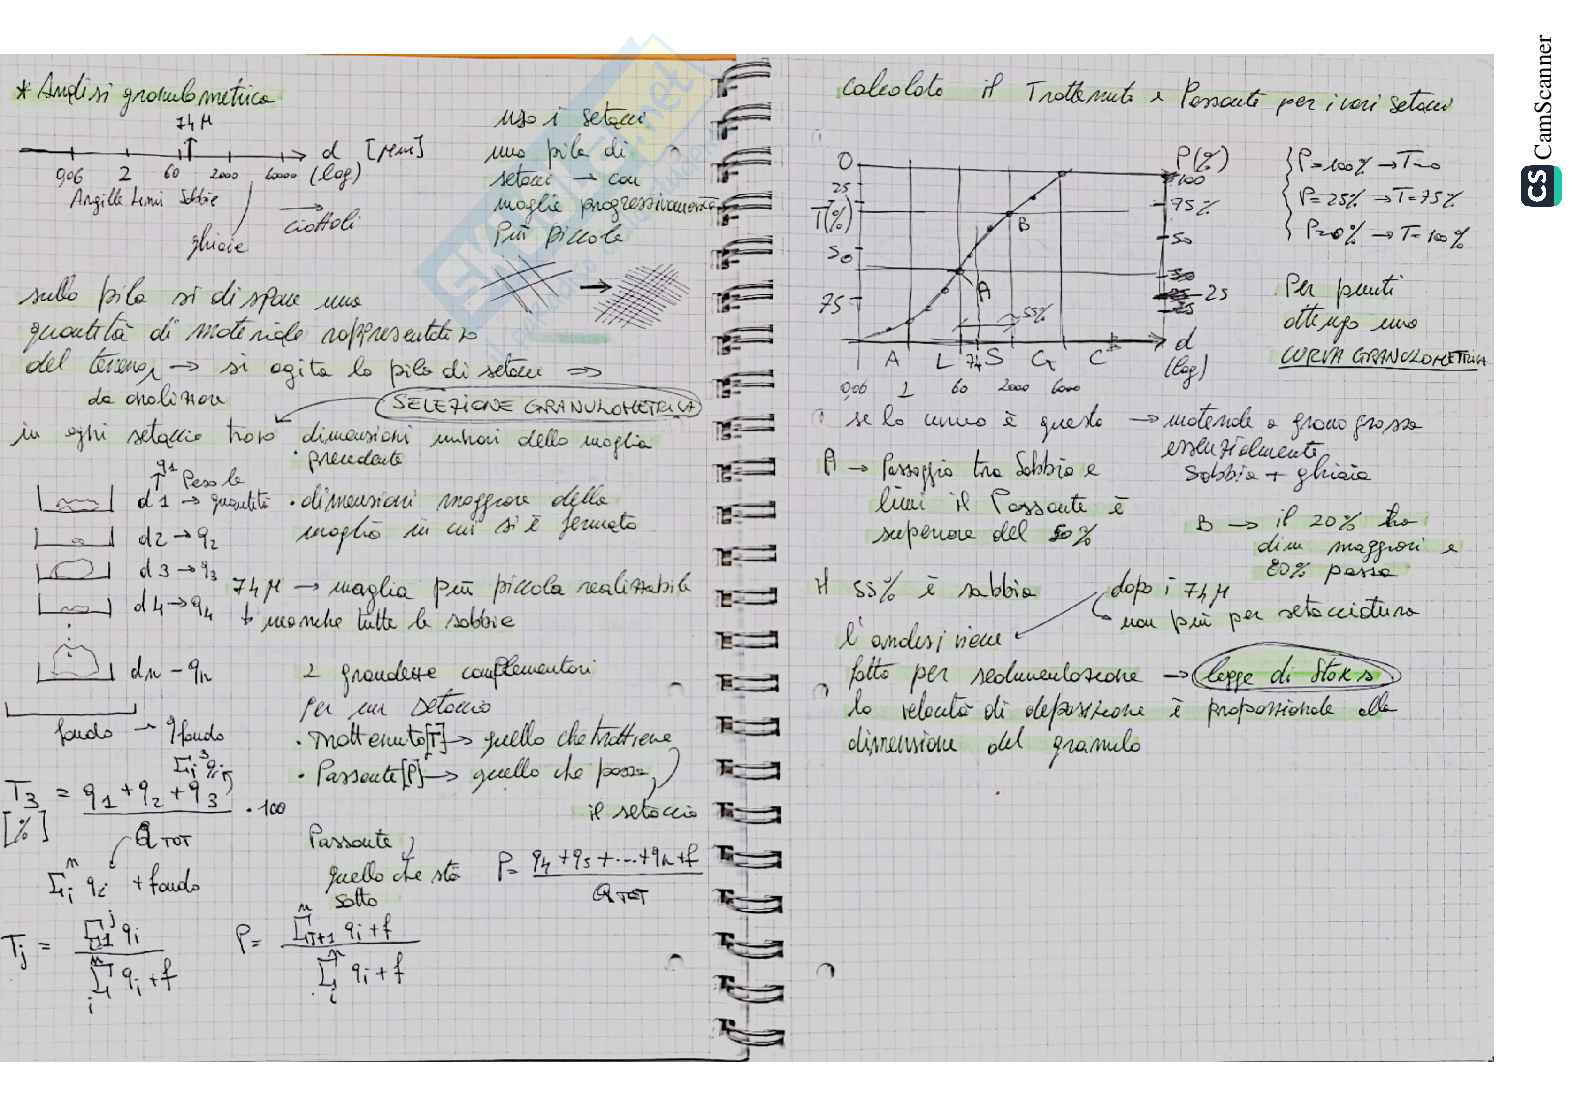 * Analisi granulometrica
74 μ
d [μm]
0,06 2 60 2000 60000 (log)
Argille Limi Sabbie
ghiaie
ciottoli
uso i setacci
una pila di
setacci → con
maglie progressivamente
più piccole
sulla pila si dispone una
quantità di materiale rappresentativo
del terreno → si agita la pila di setacci ⇒
da analizzare
SELEZIONE GRANULOMETRICA
in ogni setaccio trovo
· dimensioni minori della maglia
precedente
· dimensioni maggiore della
maglia in cui si è fermato
q1 Peso la
d1 → quantità
d2 → q2
d3 → q3
d4 → q4
dn - qn
fondo → qfondo
74 μ → maglia più piccola realizzabile
↳ neanche tutte le sabbie
2 grandezze complementari
per un setaccio
· Trattenuto [T] → quello che trattiene
· Passante [P] → quello che passa
il setaccio
Σi³ qi
T3 = q1 + q2 + q3 / QTOT · 100
[%]
Σi^n qi + fondo
Passante
quello che sta
sotto
P = q4 + q5 + ... + qn + f / QTOT
Tj = Σ1^j qi / Σi^n qi + f
P = Σj+1^n qi + f / Σi^n qi + f
calcolato il Trattenuto e Passante per i vari setacci
0
25
T(%)
50
75
P(%)
100
75%
50
25
A
B
55%
A L 74 S G C
d
(log)
0,06 2 60 2000 6000
P=100% → T=0
P=25% → T=75%
P=0% → T=100%
Per punti
ottengo una
CURVA GRANULOMETRICA
se la curva è questa → materiale a grana grossa
essenzialmente
Sabbia + ghiaia
A → Passaggio tra Sabbia e
limi il Passante è
superiore del 50%
B → il 20% ha
dim maggiori e
80% passa
Il 55% è sabbia
dopo i 74 μ
non più per setacciatura
l'analisi viene
fatta per sedimentazione → legge di Stoks
la velocità di deposizione è proporzionale alla
dimensione del granulo
CS CamScanner